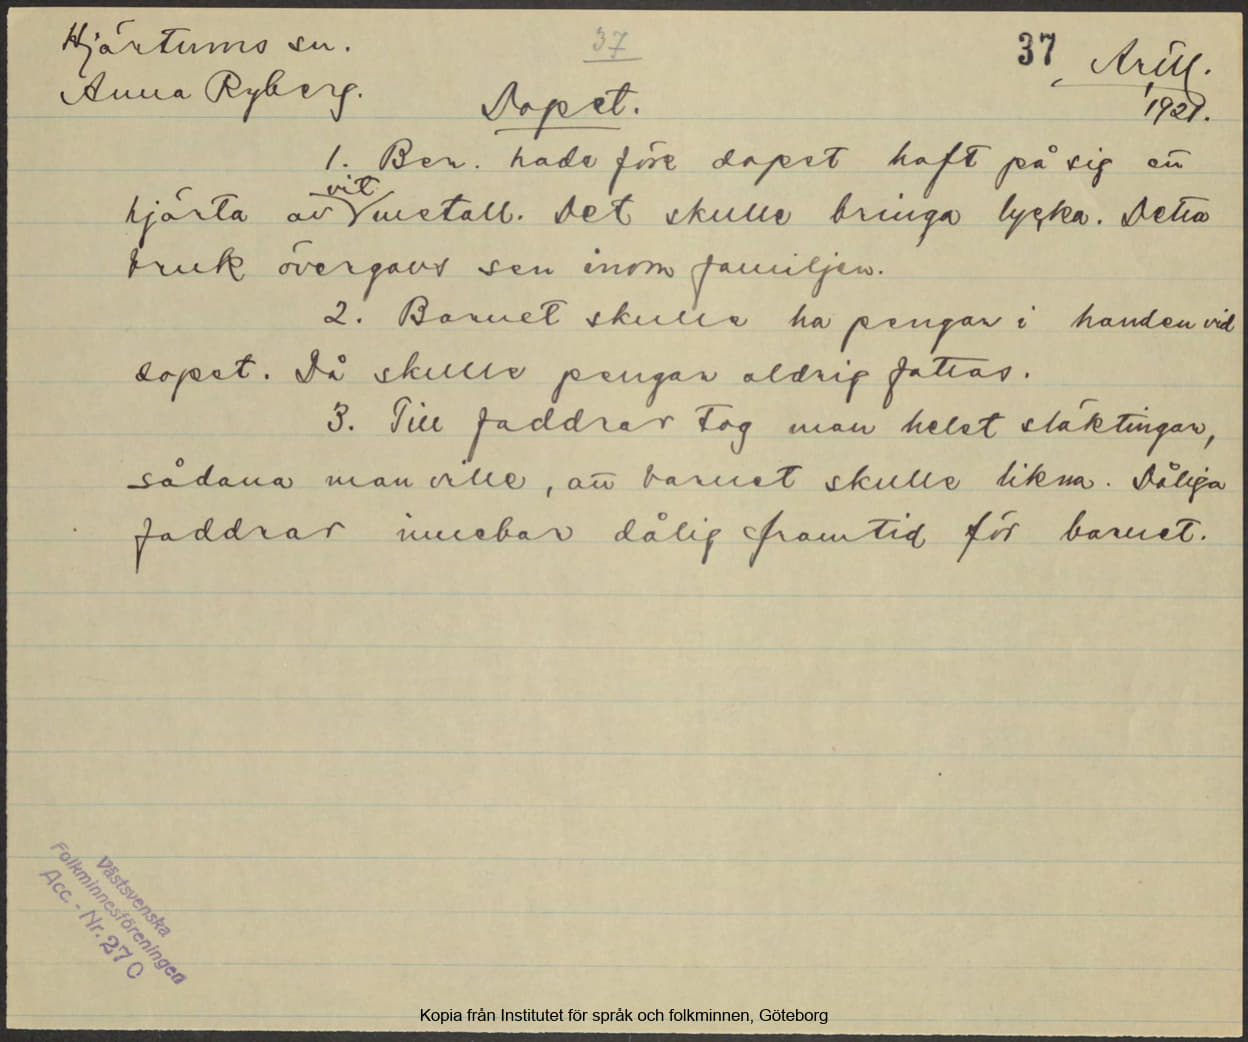 Hjärtums sn.
37
37
Anna Ryberg.
Dopet.
1921.
1. Ber. hade före dopet haft på sig ett
hjärta av vit metall. Det skulle bringa lycka. Detta
bruk övergavs sen inom familjen.
2. Barnet skulle ha pengar i handen vid
dopet. Då skulle pengar aldrig fattas.
3. Till faddrar tog man helst släktingar,
sådana man ville, att barnet skulle likna. Dåliga
faddrar innebar dålig framtid för barnet.
Västsvenska
Folkminnesföreningen
Acc.-Nr. 270
Kopia från Institutet för språk och folkminnen, Göteborg